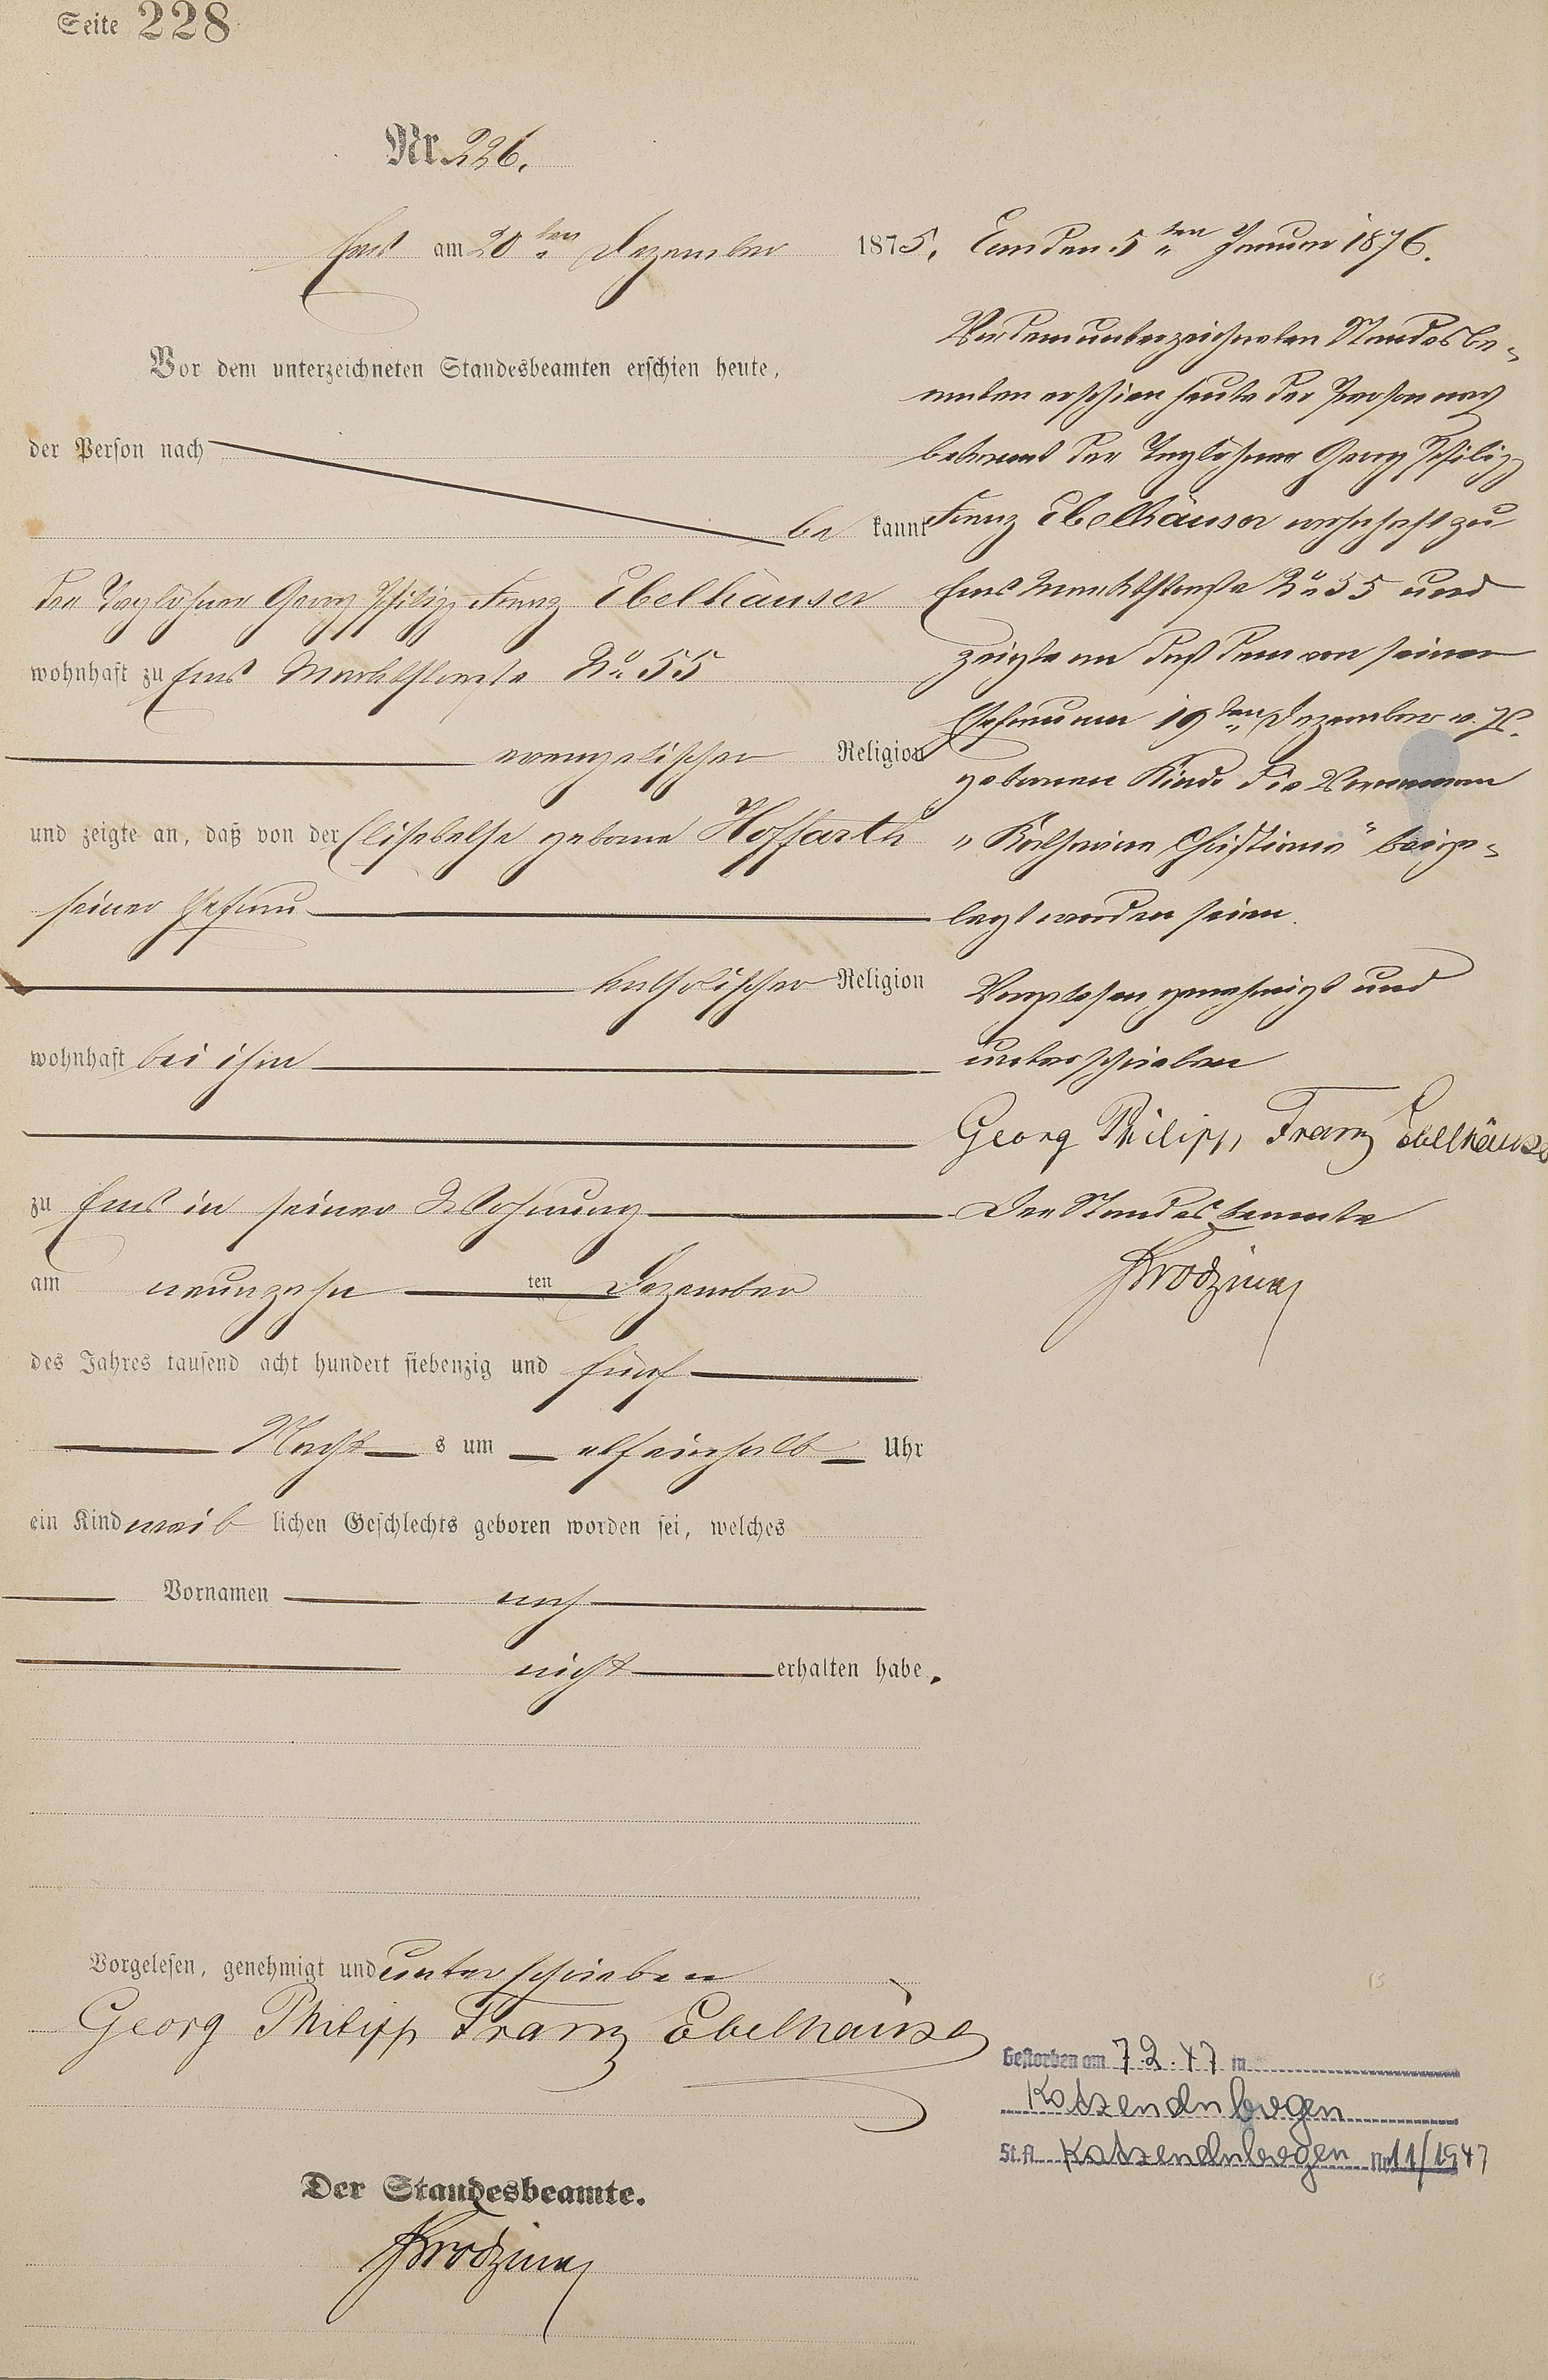 Seite 228
Nr. 226.
Ems am 20ten Dezember 1875.
Vor dem unterzeichneten Standesbeamten erschien heute,
der Person nach
be kannt
der Taglöhner Georg Philipp Franz Ebelhäuser
wohnhaft zu Ems Marktstraße No 55
evangelischer Religion
und zeigte an, daß von der Elisabethe geborne Hoffarth
seiner Ehefrau
katholischer Religion
wohnhaft bei ihm
zu Ems in seiner Wohnung
am neunzehn ten Dezember
des Jahres tausend acht hundert siebenzig und fünf
Nacht s um elfeinhalb Uhr
ein Kind weib lichen Geschlechts geboren worden sei, welches
Vornamen noch
nicht erhalten habe.
Vorgelesen, genehmigt und unterschrieben
Georg Philipp Franz Ebelhäuser
Der Standesbeamte.
Ems den 5ten Januar 1876.
Vor dem unterzeichneten Standesbe-
amten erschien heute der Person nach
bekannt der Taglöhner Georg Philipp
Franz Ebelhäuser wohnhaft zu
Ems Marktstraße No 55 und
zeigte an daß dem von seiner
Ehefrau am 19ten Dezember v. Js.
gebornen Kinde die Vornamen
"Katharina Christiane" beige-
legt worden seien.
Vorgelesen genehmigt und
unterschrieben
Georg Philipp Franz Ebelhäuser
Der Standesbeamte
Gestorben am 7.2.47 in
Katzenelnbogen
St.A. Katzenelnbogen Nr. 11/1947